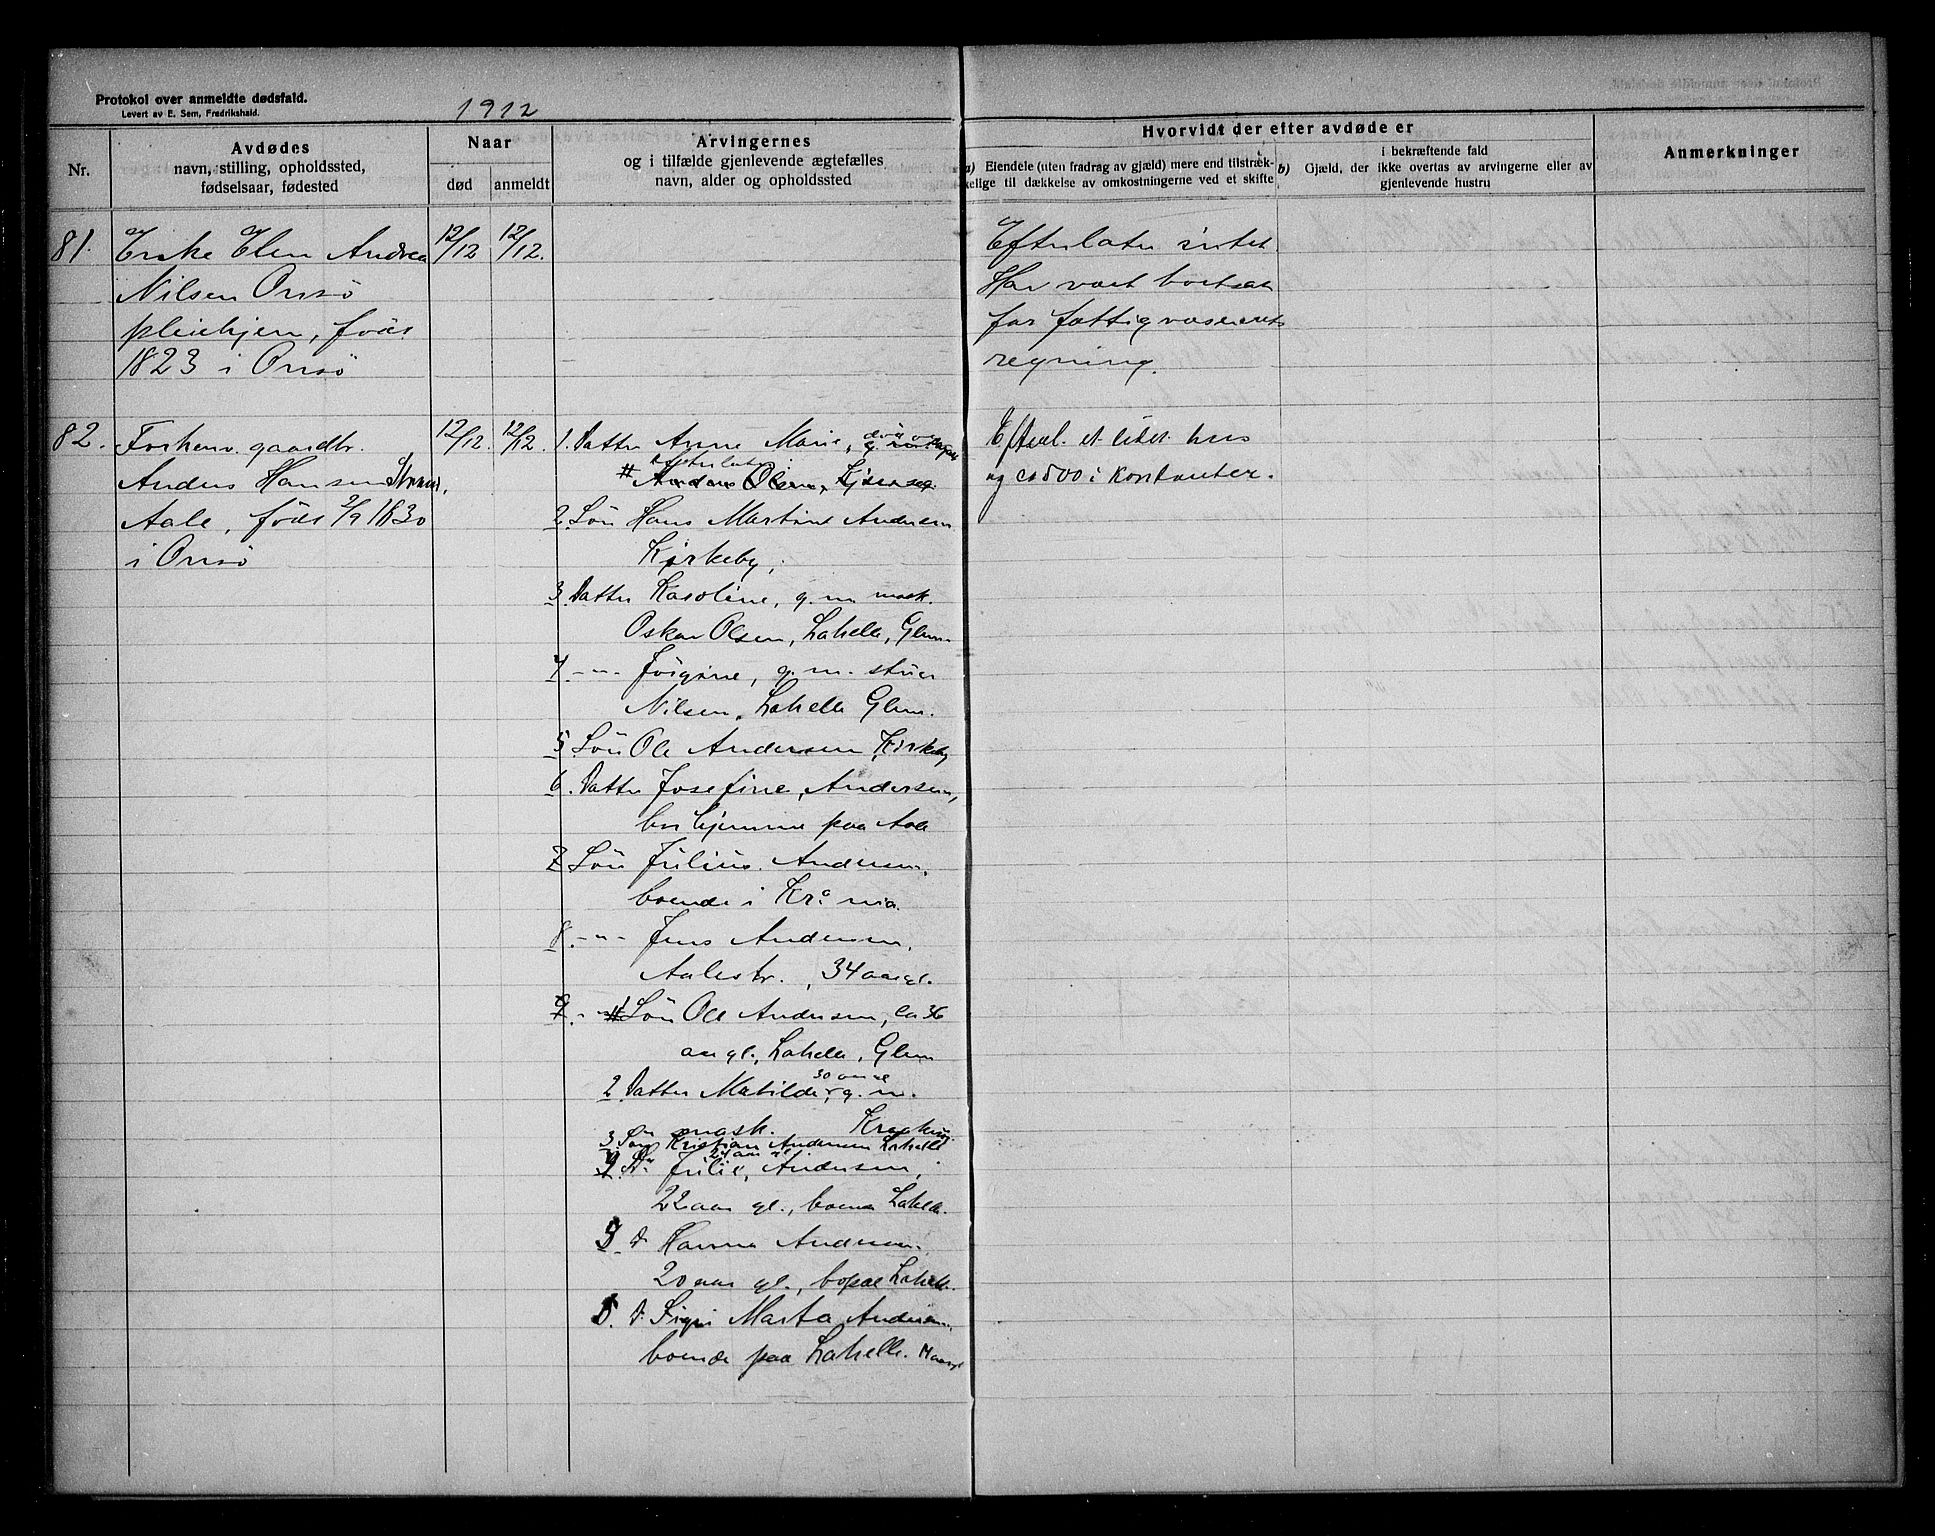 Protokol over anmeldte dødsfald.
Levert av E. Sem, Fredrikshald.
1912
Nr.
Avdødes
navn, stilling, opholdssted,
fødselsaar, fødested
Naar
død
anmeldt
Arvingernes
og i tilfælde gjenlevende ægtefælles
navn, alder og opholdssted
Hvorvidt der efter avdøde er
a) Eiendele (uten fradrag av gjæld) mere end tilstræk-
kelige til dækkelse av omkostningerne ved et skifte
b) Gjæld, der i bekræftende fald
ikke overtas av arvingerne eller av
gjenlevende hustru
Anmerkninger
81. Enke Elen Andrea
Nilsen Onsö
pleiehjem, föds
1823 i Onsö
12/12
12/12.
Efterlater intet.
Har vært bortsat
for fattigvæsenets
regning.
82. Forhenv. gaardbr.
Anders Hansen
Aale, föds 2/9 1830
i Onsö
12/12.
12/12.
1. Datter Anne Marie, död
Efterlater:
2. Sön Hans Martin Andersen
Kirkeby,
3. Datter Karoline, g. m. mask.
Oskar Olsen, Lahelle, Glem
4 -"- Jörgine, g. m. stuer
Nilsen, Lahelle Glem.
5 Sön Ole Andersen Kirkeby
6. Datter Josefine Andersen,
bor hjemme paa Aale
7 Sön Julius Andersen,
boende i Kr.a nia.
8. -"- Jens Andersen,
Aalestr., 34 aar gl.
9. -"- 1 Sön Ole Andersen, ca 36
aar gl., Lahelle, Glem
2 Datter Matilde, 30 aar gl. g. m.
mask. Kragerø
3 Sön Kristian Andersen Lahelle
24 aar gl
4. Dr Julie Andersen,
22 aar gl., boende Lahelle.
5 d Hanna Andersen
20 aar gl., bopæl Lahelle.
6. d. Sigri Marta Andersen,
boende paa Lahelle.
Efterl. et litet hus
og ca 500 i kontanter.